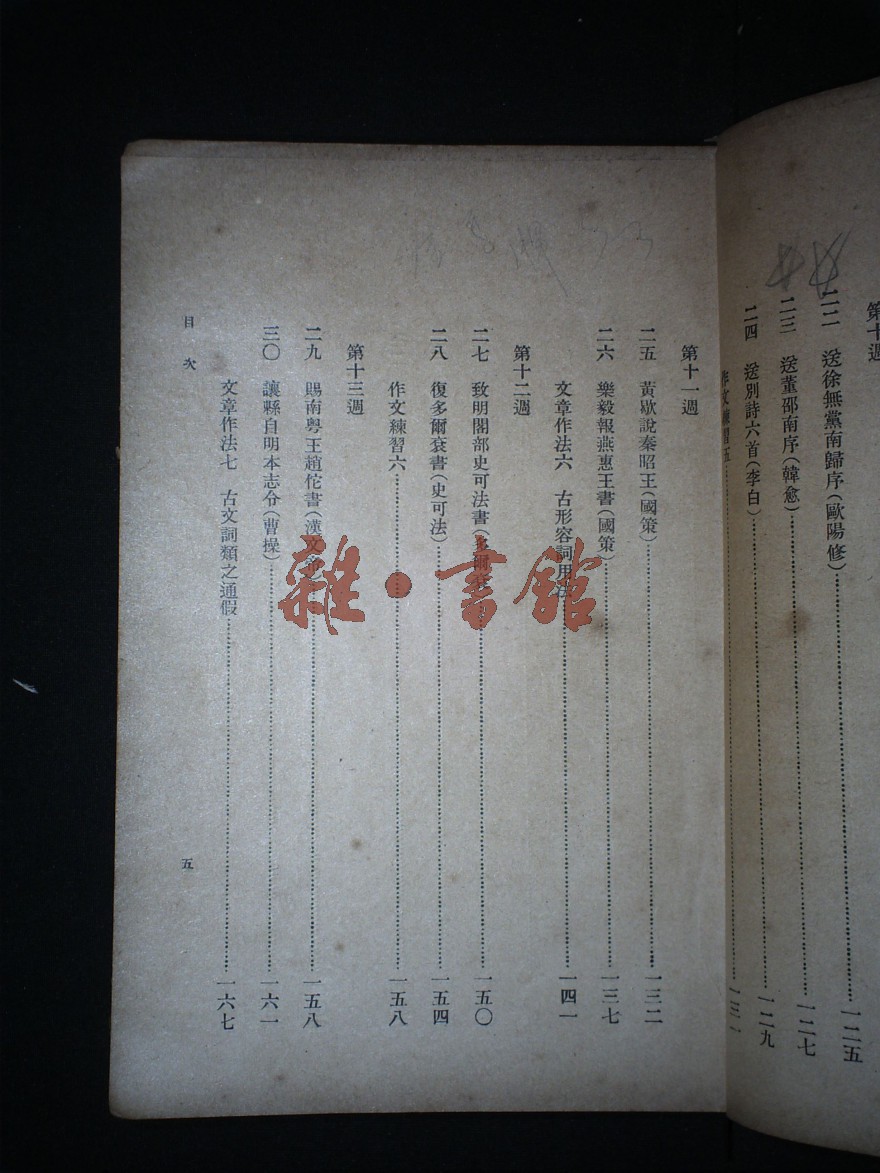 第十週
二二　送徐無黨南歸序（歐陽修）……一二五
二三　送董邵南序（韓愈）……一二七
二四　送別詩六首（李白）……一二九
作文練習五……一三一
第十一週
二五　黃歇說秦昭王（國策）……一三二
二六　樂毅報燕惠王書（國策）……一三七
文章作法六　古形容詞用法……一四一
第十二週
二七　致明閣部史可法書（多爾袞）……一五〇
二八　復多爾袞書（史可法）……一五四
作文練習六……一五八
第十三週
二九　賜南粵王趙佗書（漢文帝）……一五八
三〇　讓縣自明本志令（曹操）……一六一
文章作法七　古文詞類之通假……一六七
目次
五
雜·書館